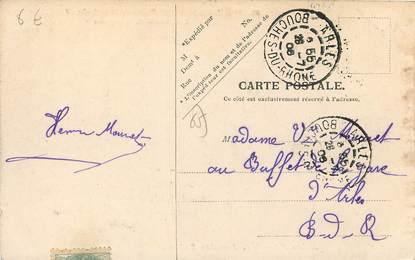 6 €
*Expédié par
No.
M
Dom.t à
Rue
*L'inscription du nom et de l'adresse de
l'expéditeur est facultative.
ARLES
3 55
28 -7
06
BOUCHES-DU-RHONE
CARTE POSTALE.
Ce côté est exclusivement réservé à l'adresse.
Henri Mouret
Madame V. Mouret
au Buffet de la gare
d'Arles
B-d-R
ARLES
28 -7
06